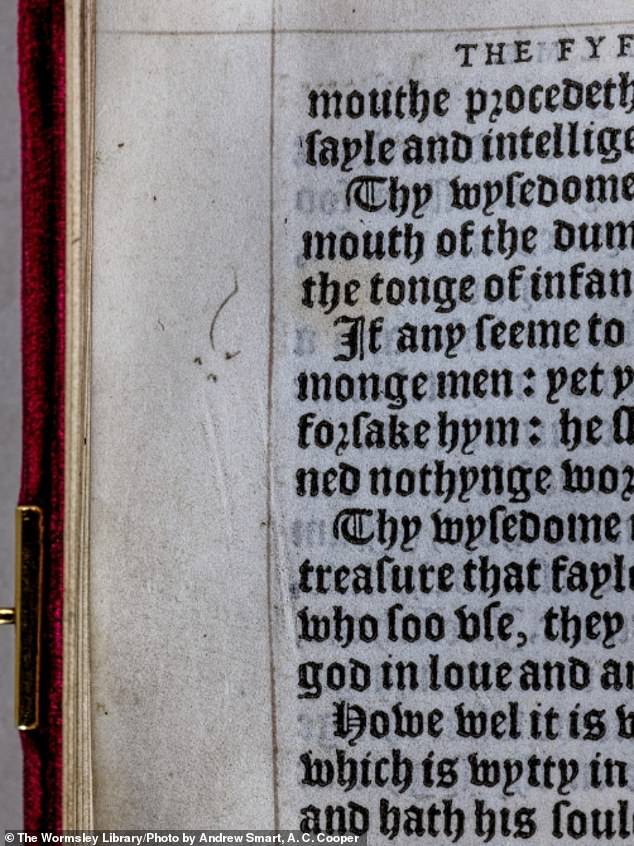 THE FYF
mouthe procedeth
ſayle and intellige
Thy wyſedome
mouth of the dum
the tonge of infan
If any ſeeme to
monge men: yet y
forſake hym: he
ned nothynge wor
Thy wyſedome
treaſure that fayle
who ſoo vſe, they
god in loue and
Howe wel it is
which is wytty in
and hath his ſoul
© The Wormsley Library/Photo by Andrew Smart, A. C. Cooper